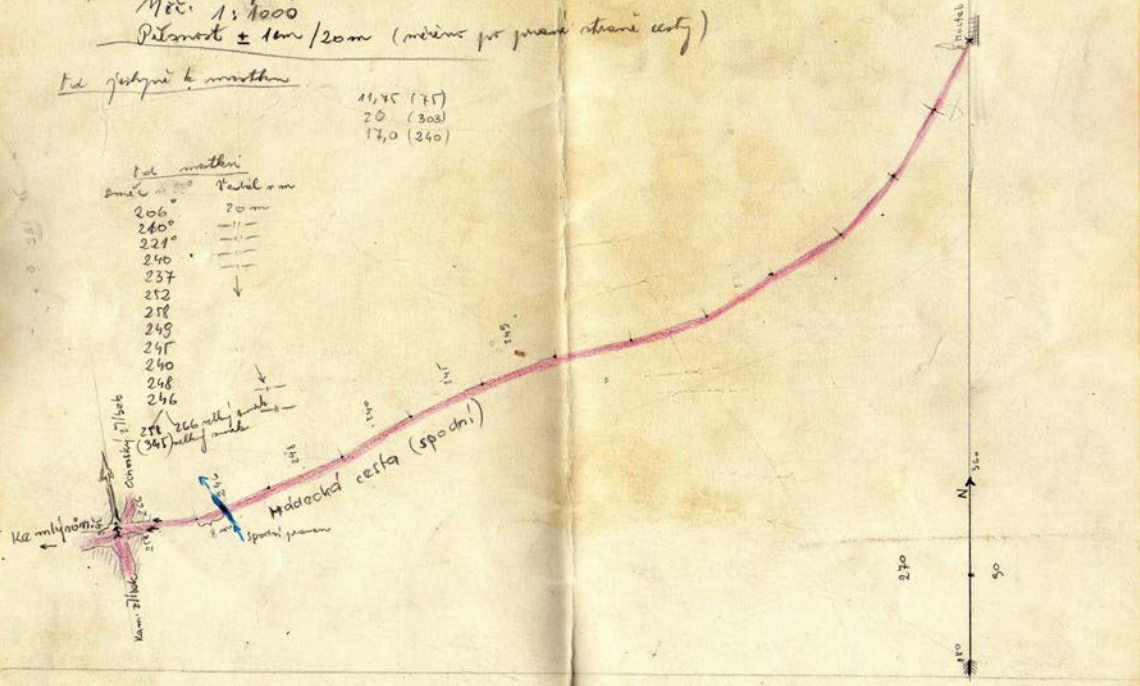 Měř. 1:1000
Přesnost ± 1cm/20m (měřeno po pravé straně cesty)
Od jeskyně k mostku
11,75 (75)
20 (303)
17,0 (240)
Od mostku
směr
206° 20 m
240°
221°
240
237
252
258
249
245
240
248
246
258 266 velký smrk
(345) velký smrk
Mostek
249
245
240
248
246
Hádecká cesta (spodní)
8 m
spodní pramen
Ochozský žlíbek
266
258
Ka mlýnům
Kam. žlíbek
360
N
270
90
180